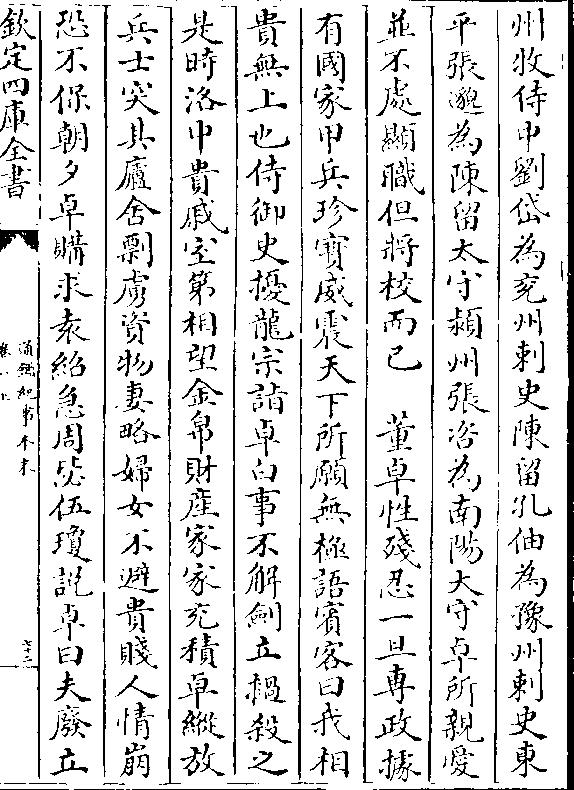 州牧侍中劉岱為兖州刺史陳留孔伷為豫州刺史東
平張邈為陳留太守潁州張咨為南陽太守卓所親愛
並不處顯職但將校而已　董卓性殘忍一旦専政據
有國家甲兵珍寳威震天下所願無極語賓客曰我相
貴無上也侍御史擾龍宗詣卓白事不解劒立檛殺之
是時洛中貴戚室第相望金帛財産家家充積卓縱放
兵士突其廬舍剽虜資物妻略婦女不避貴賤人情崩
恐不保朝夕卓購求袁紹急周毖伍瓊說卓曰夫廢立
欽定四庫全書
通鑑紀事本末
卷八上
七十二